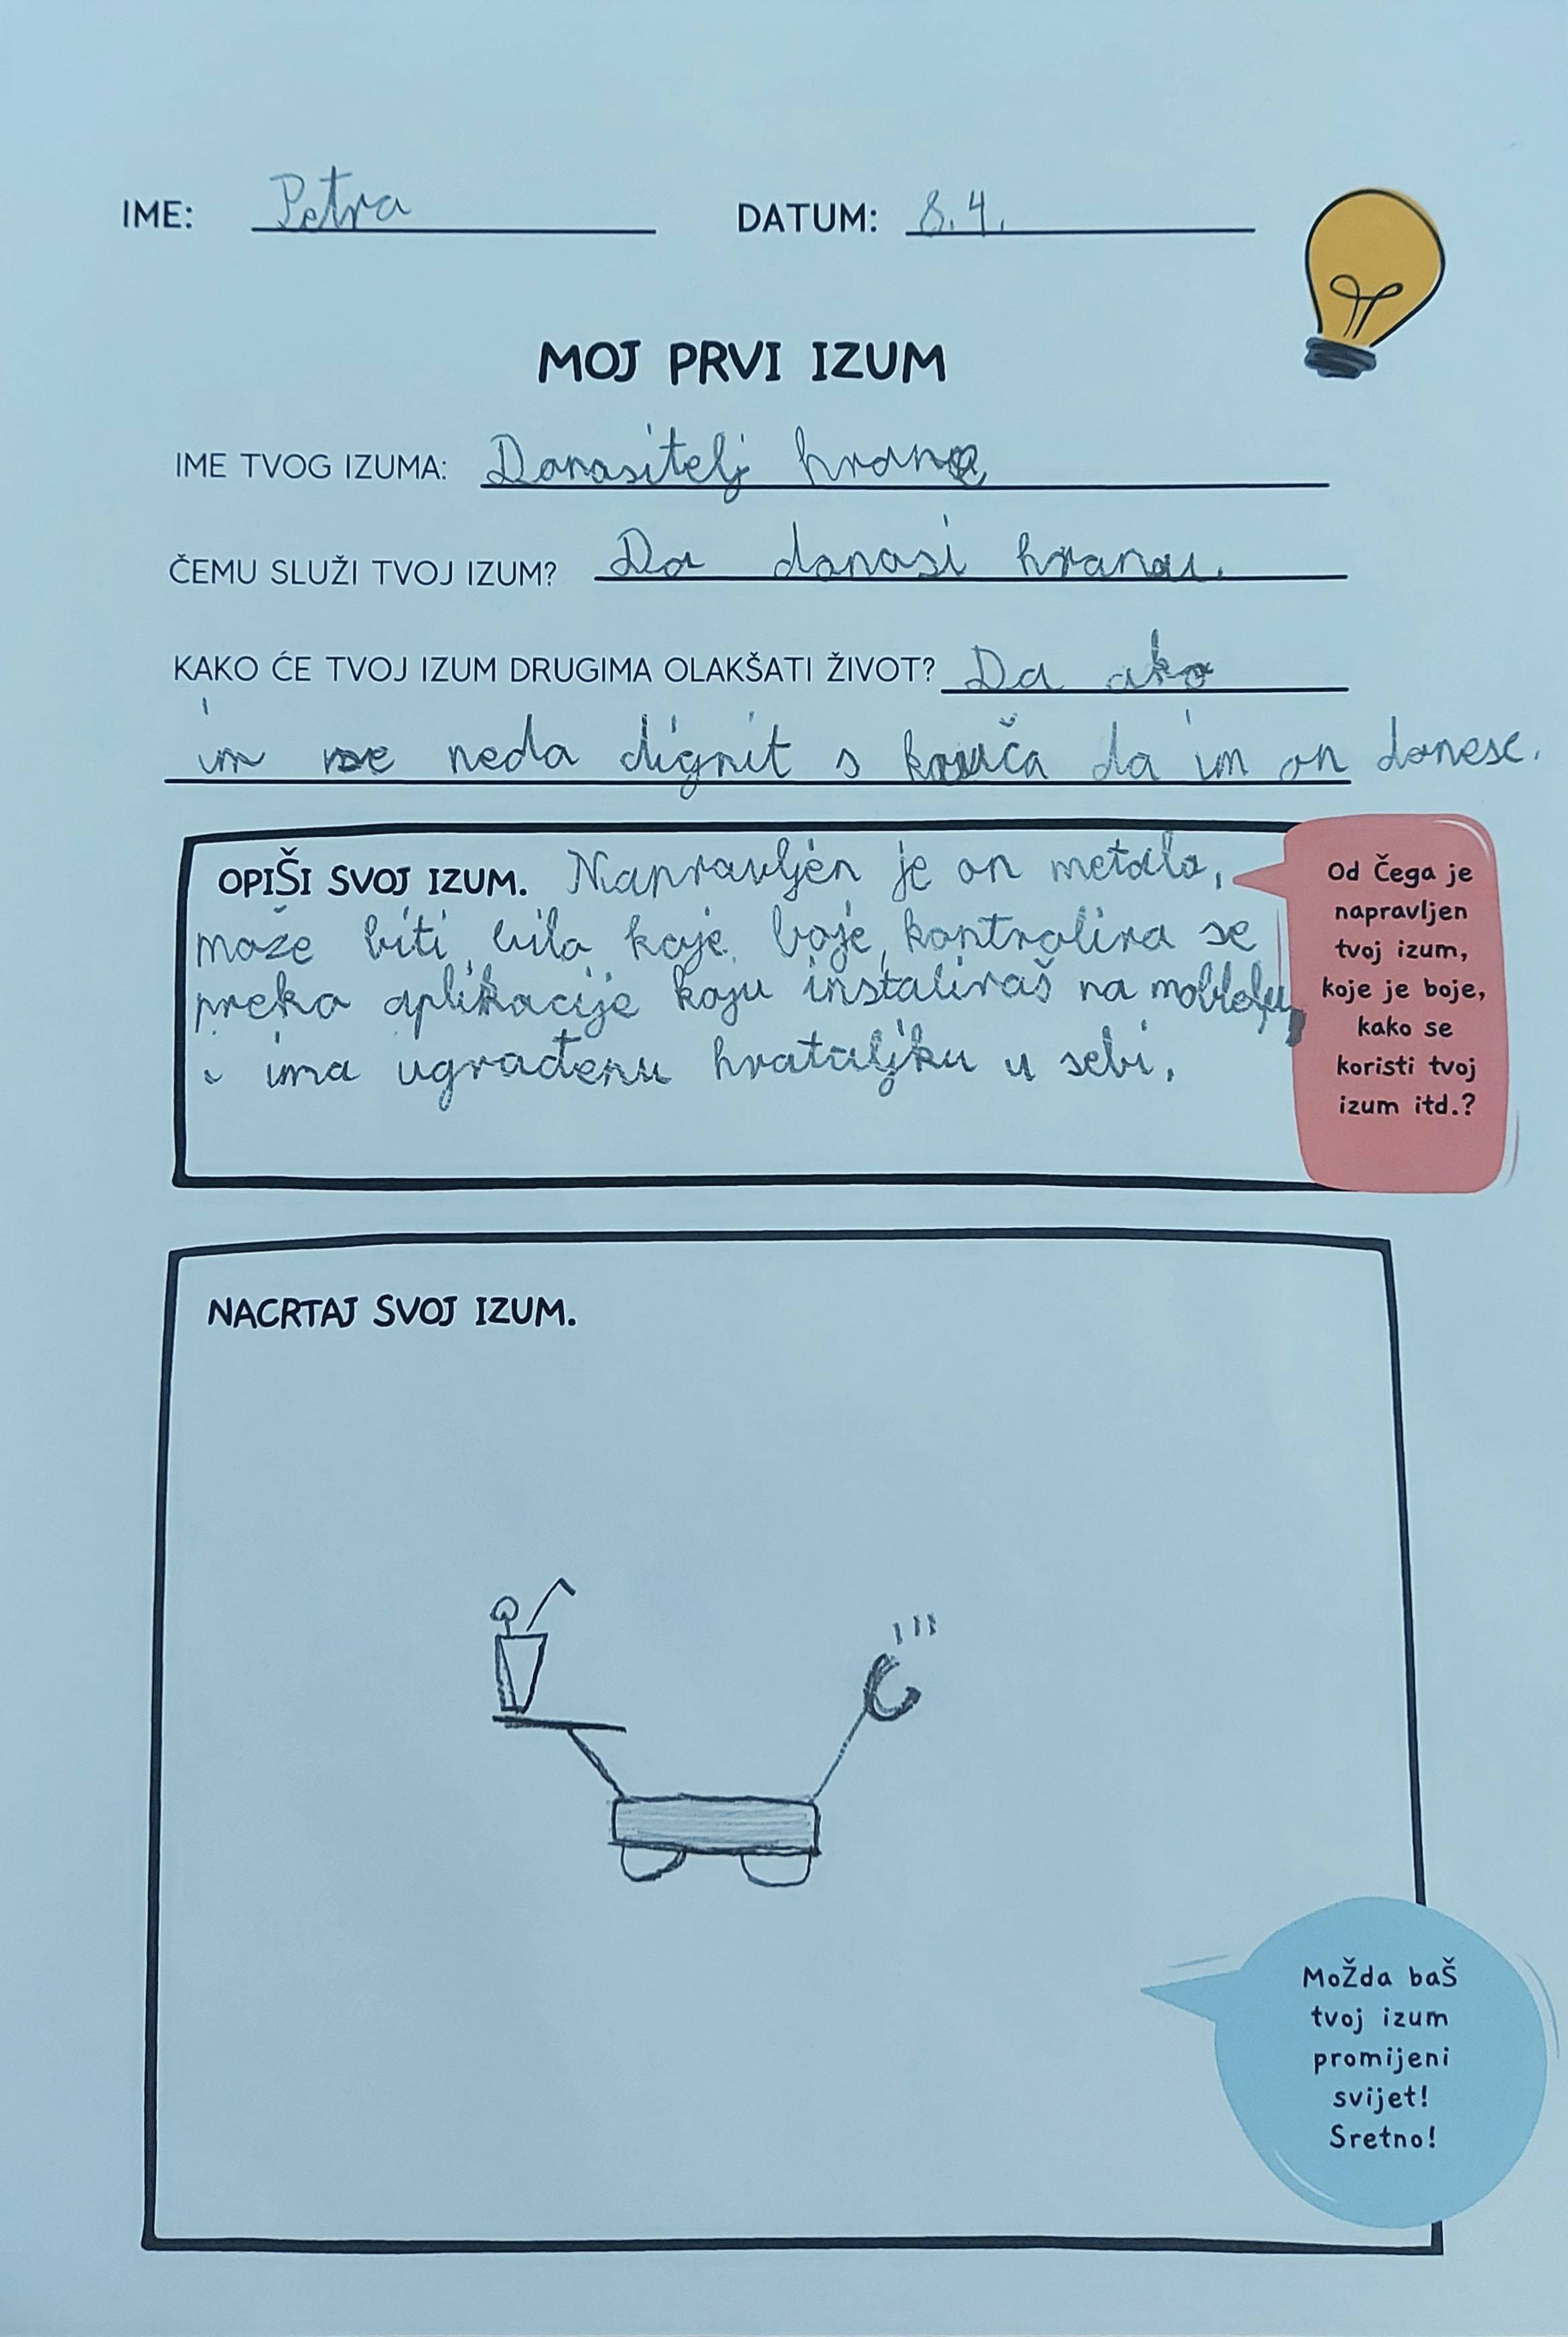 IME: Petra DATUM: 8.4.
MOJ PRVI IZUM
IME TVOG IZUMA: Donositelj hrane
ČEMU SLUŽI TVOJ IZUM? Da donosi hranu.
KAKO ĆE TVOJ IZUM DRUGIMA OLAKŠATI ŽIVOT? Da ako
im se neda dignit s kauča da im on donese.
OPIŠI SVOJ IZUM. Napravljen je on metala,
može biti bilo koje boje, kontrolira se
preko aplikacije koju instaliraš na mobitelu,
i ima ugrađenu hvataljku u sebi.
Od Čega je
napravljen
tvoj izum,
koje je boje,
kako se
koristi tvoj
izum itd.?
NACRTAJ SVOJ IZUM.
MoŽda baŠ
tvoj izum
promijeni
svijet!
Sretno!